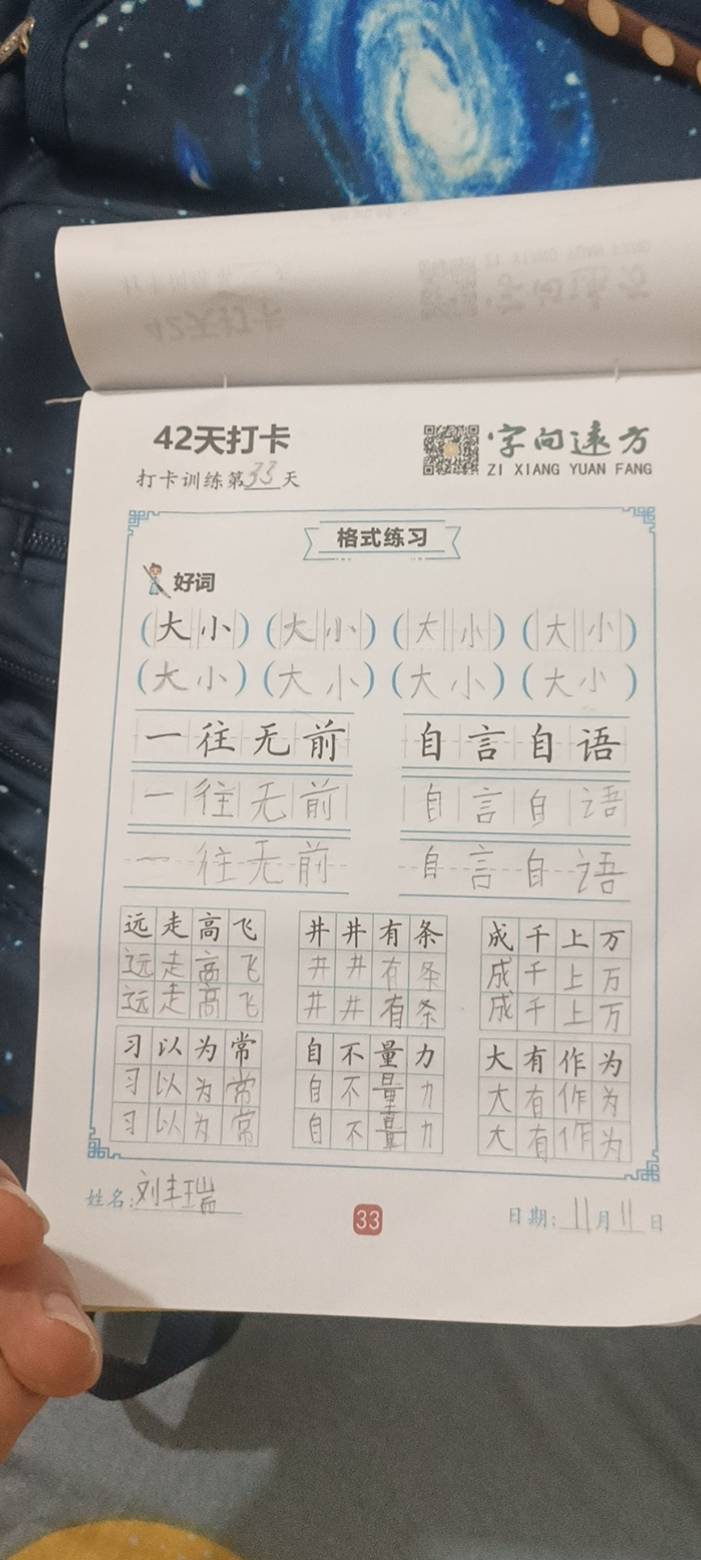 42天打卡
字向远方
ZI XIANG YUAN FANG
打卡训练第33天
格式练习
好词
(大小) (大小) (大小) (大小)
(大小) (大小) (大小) (大小)
一往无前 自言自语
一往无前 自言自语
一往无前 自言自语
远走高飞 井井有条 成千上万
远走高飞 井井有条 成千上万
远走高飞 井井有条 成千上万
习以为常 自不量力 大有作为
习以为常 自不量力 大有作为
习以为常 自不量力 大有作为
姓名:刘丰瑞
33
日期:11月11日